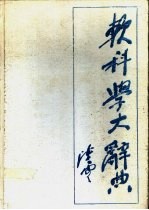 軟科學大辭典